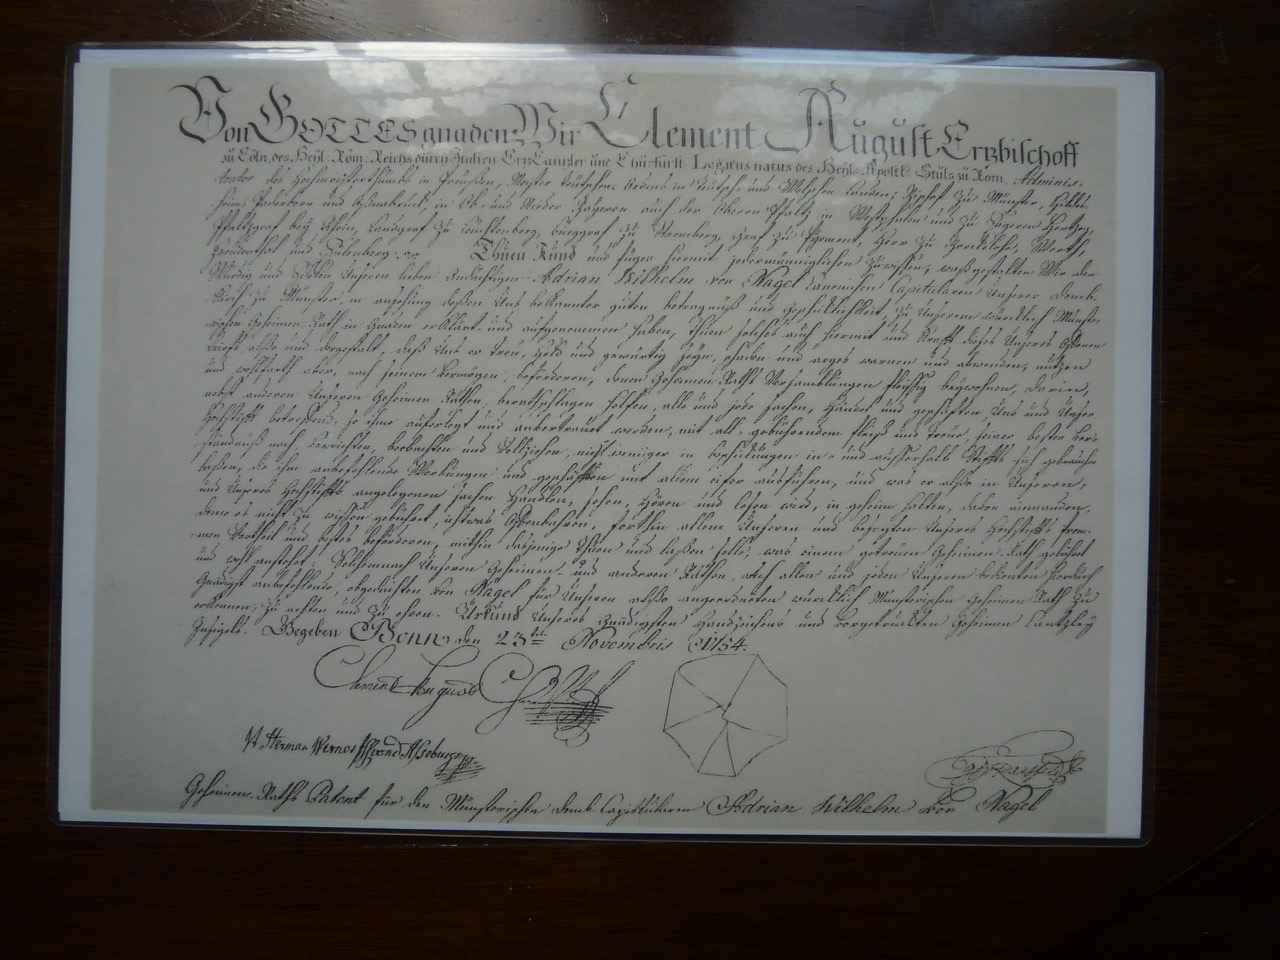 Von GOTTES gnaden Wir Clement August Ertzbischoff
zu Cöln, des Heyl: Röm: Reichs durch Italien ErtzCantzler und Chürfürst Legatus natus des Heyl: Apostl: Stüls zu Rom, Adminis-
trator des Hochmeisterthumbs in Preußen, Meister Teutschen Ordens in Teutsch- und Welschen Landen, Bischof zu Münster, Hildes-
heim, Paderborn und Oßnabrück, in Ob- und Nieder Bayeren auch der Oberen Pfaltz in Westphalen und zu Engeren Hertzog,
Pfaltzgraf bey Rhein, Landgraf zu Leuchtenberg, Burggraf zu Stromberg, Graf zu Pyrmont, Herr zu Borckelohe, Werth,
Freudenthal und Eulenberg Thuen Kund und fügen hiermit jedermänniglichen zu wissen, waßgestalten Wir den
Würdig und Edelen Unseren lieben Andächtigen Adrian Wilhelm von Nagel Canonichen Capitularen Unserer Domb-
Kirch zu Münster, in ansehung deßen Uns bekannter guten betragnuß und Geschicklichkeit, zu Unserem würcklich Münste-
rischen Geheimen-Rath in Gnaden erklärt- und aufgenommen haben, Thuen solches auch hiermit und Krafft dieses Unseres Offenen
Briefs also und dergestalt, daß Uns er treu, hold und gewärtig seyn, schaden und arges warnen und abwenden, nutzen
und wolfarth aber, nach seinem Vermögen, beförderen, denen Geheimen-Raths Versamblungen fleissig beywohnen, darin,
nebst anderen Unseren Geheimen Räthen, berathschlagen helfen, alle und jede sachen, Händel und geschäfften Uns und Unser
Hochstifft betreffend, so ihme auferlegt und anbertrauet werden, mit all-gebührendem fleiß und treue, seiner besten Ver-
ständnuß nach verrichten, beobachten und Vollziehen, nicht weniger in beschickungen in- und ausserhalb Stiffts sich gebrauchen
laßen, die ihm anbefehlende Werbungen und geschäfften mit allem eifer ausführen, und was er also in Unseren,
und Unseres Hochstiffts angelegenen sachen handlen, sehen, hören und lesen wird, in geheim halten, davon niemanden,
deme es nicht zu wissen gebühret, ichtwas Offenbahren, forthin allem Unseren und besagten Unseres Hochstiffts from-
men Vortheil und bestes beförderen, mithin dasjenige Thuen und laßen solle, was einem getreuen Geheimen-Rath gebühret
und wohl anstehet; Solchemnach Unseren Geheimen- und anderen Räthen, auch allen und jeden Unseren bekanten hierdurch
Gnädigst anbefehlend, obgedachten von Nagel für Unseren also angeordneten würcklich Münsterischen Geheimen Rath zu
erkennen, zu achten und zu ehren. Urkund Unseres Gnädigsten Handzeichens und vorgetruckten Geheimen Cantzley
Insigels. Gegeben Bonn den 23ten Novembris 1754.
Clement August
Vt Herman Werner von d Asseburg
Geheimen-Raths Patent für den Münsterischen Domb-Capitularen Adrian Wilhelm von Nagel